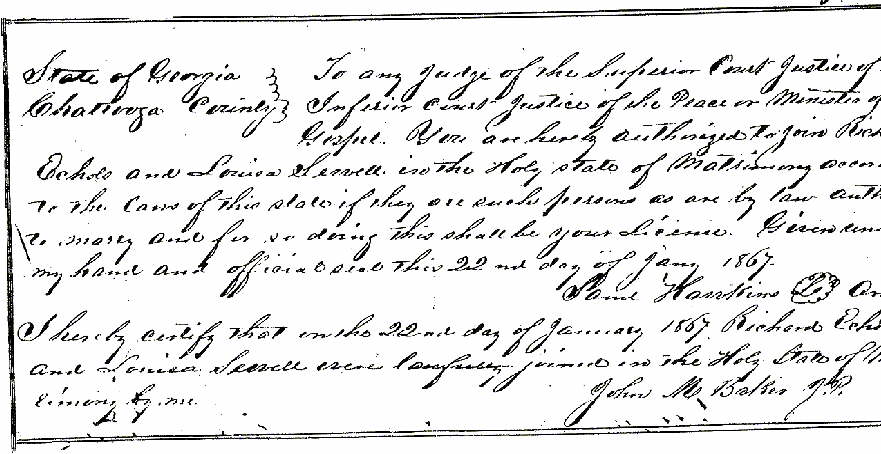 State of Georgia } To any Judge of the Superior Court Justice of
Chattooga County } Inferior court Justice of the Peace or Minister of
Gospel. You are hereby authorized to join Rich
Echols and Louisa Sewell in the Holy state of Matrimony accor
to the Laws of this state if they are such persons as are by law auth
to marry and for so doing this shall be your License. Given un
my hand and official seal this 22nd day of Jany 1867.
Saml Hawkins LS
I hereby certify that on the 22nd day of January 1867 Richard Echo
and Louisa Sewell were lawfully joined in the Holy State of
rimony by me.
John M Baker J.P.